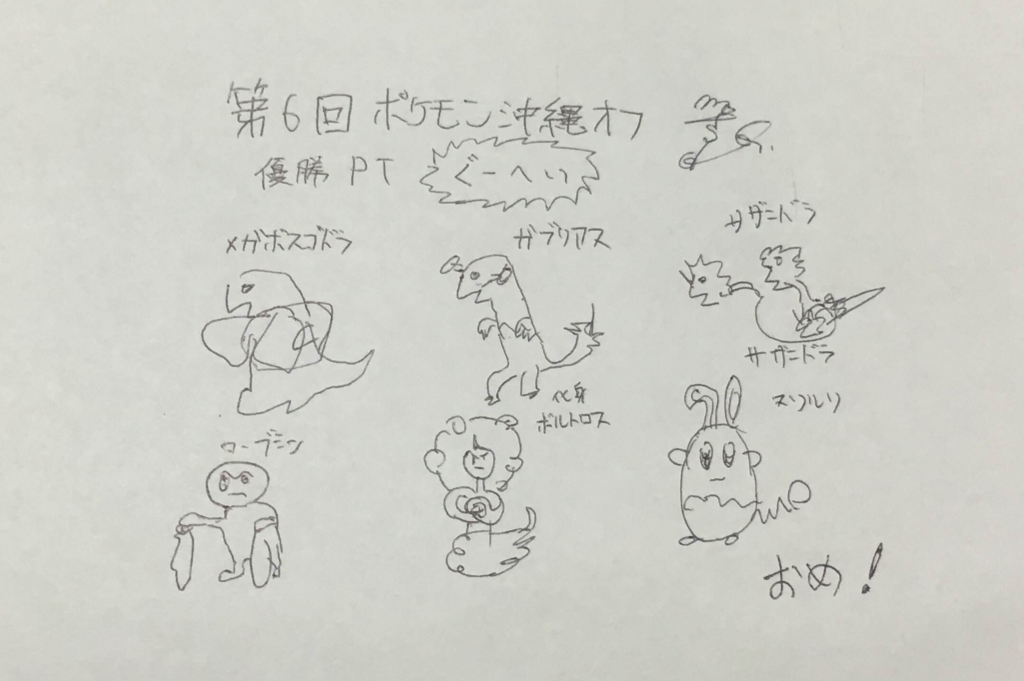 第6回 ポケモン沖縄オフ
優勝 PT ぐーへい
メガボスゴドラ
ガブリアス
サザンドラ
サザンドラ
ローブシン
化身
ボルトロス
マリルリ
おめ!